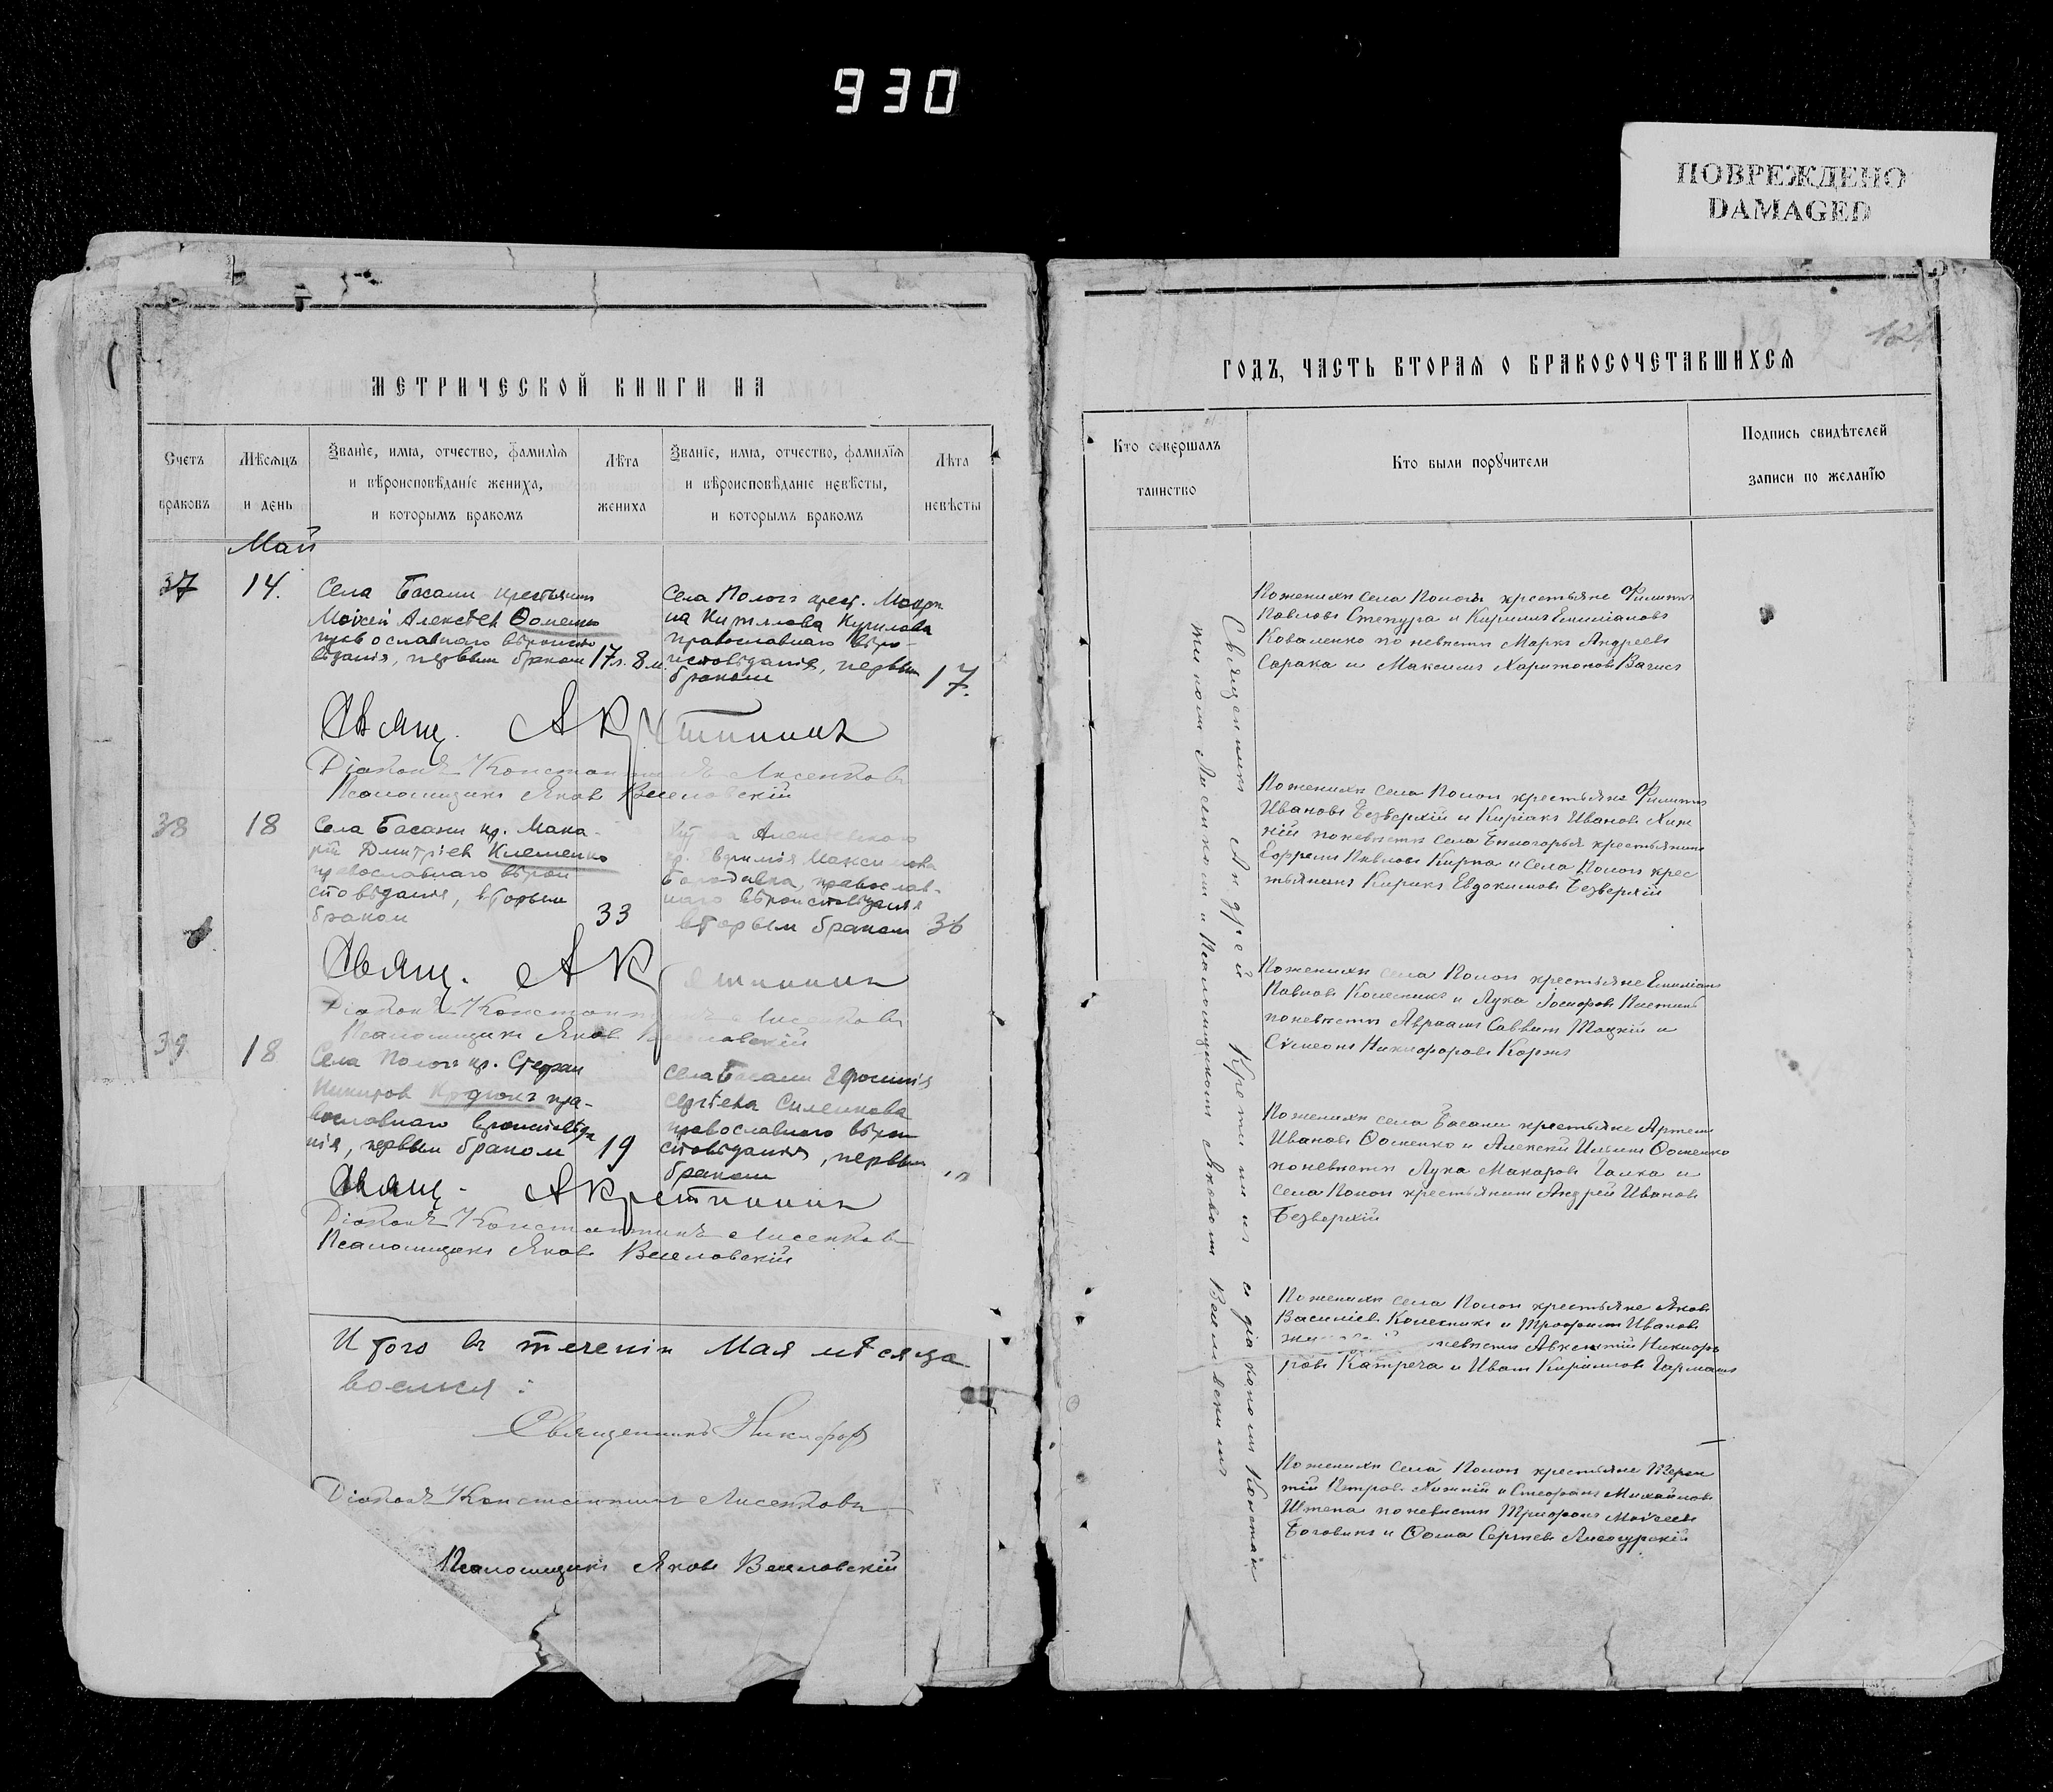 930
ПОВРЕЖДЕНО
DAMAGED
МЕТРИЧЕСКОЙ КНИГИ НА
Счетъ браковъ
Мѣсяцъ и день
Званіе, имя, отчество, фамилія
и вѣроисповѣданіе жениха,
и которымъ бракомъ
Лѣта жениха
Званіе, имя, отчество, фамилія
и вѣроисповѣданіе невѣсты,
и которымъ бракомъ
Лѣта невѣсты
Май
37
14.
Села Басани крестьянин
Моисей Алексѣев Ѳоменко
православнаго вѣроиспо
вѣданія, первым браком
17 л. 8 м.
Села Пологъ крест.
на Кириллова Курилова
православнаго вѣро-
исповѣданія, первым
браком
17.
Свящ. А Крстининъ
Діаконъ Константинъ Лисенковъ
Псаломщикъ Яковъ Веселовскій
38
18
Села Басани кр. Мака-
рій Дмитріев Клеменко
православнаго вѣрои
сповѣданія, вторым
браком
33
кр. Евфимія Максимова
Бородавка, православ-
наго вѣроисповѣданія
вторым браком
36
Свящ. А Кр
Діаконъ Константинъ Лисенковъ
Псаломщикъ Яковъ Веселовскій
39.
18
Села Пологъ кр. Стефан
Никитов пра-
вославнаго вѣроисповѣда
нія, первым браком
19
Села Басани Ефросинія
Сергѣева Силенкова
православнаго вѣрои
сповѣданія, первым
браком
Свящ. А Крстининъ
Діаконъ Константинъ Лисенковъ
Псаломщикъ Яковъ Веселовскій
Итого въ теченіи Мая мѣсяца
Священникъ Никифор
Діаконъ Константинъ Лисенковъ
Псаломщикъ Яковъ Веселовскій
ГОДЪ, ЧАСТЬ ВТОРАЯ О БРАКОСОЧЕТАВШИХСЯ
Кто совершалъ
таинство
Кто были поручители
Подпись свидѣтелей
записи по желанію
Священникъ Андрей и діакономъ Констан
тиномъ Лисенкомъ и Псаломщикомъ Яковомъ Веселовскимъ
По женихѣ села Пологъ крестьяне Филиппъ
Павловъ Степура и Кириллъ Емиліановъ
Коваленко по невѣстѣ Маркъ Андреевъ
Сарака и Максимъ Харитоновъ
По женихѣ села Пологъ крестьяне Филиппъ
Ивановъ Безверхій и Киріакъ Ивановъ Хиж
ній по невѣстѣ села Бѣлогорья крестьянинъ
Ефремъ Павловъ Кирпа и села Пологъ крес
тьянинъ Кирикъ Евдокимовъ Безверхій
По женихѣ села Пологъ крестьяне Емиліанъ
Павловъ Колесникъ и Лука
по невѣстѣ Авраамъ Саввинъ и
Сѵмеонъ Никифоровъ Коржъ
По женихѣ села Басани крестьяне Артемъ
Ивановъ Ѳоменко и Алексѣй Ильинъ Ѳоменко
по невѣстѣ Лука Макаровъ Галка и
села Пологъ крестьянинъ Андрей Ивановъ
Безверхій
По женихѣ села Пологъ крестьяне Яковъ
Василіевъ Колесникъ и Трофимъ Ивановъ
невѣстѣ Авксентій Никифо
ровъ Катреча и Иванъ Кирилловъ
По женихѣ села Пологъ крестьяне Терен
тій Петровъ Хижній и Стефанъ Михайловъ
Штепа по невѣстѣ Трифонъ Моисеевъ
и Ѳома Сергѣевъ